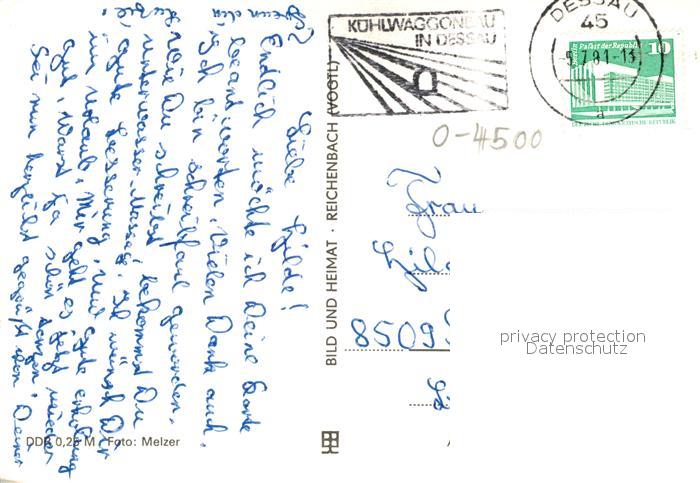 KÜHLWAGGONBAU
IN DESSAU
DESSAU
45
-5.7.81-13
a
Palast der Republik
10
DEUTSCHE DEMOKRATISCHE REPUBLIK
O-4500
Liebe Hilde!
Endlich möchte ich Deine Karte
beantworten, Vielen Dank auch,
ich bin schreibfaul geworden.
Wie Du schreibst, bekommst Du
Unterwasser Massage. Ich wünsch Dir
gute Besserung, und gute Erholung
im Urlaub, Mir geht es jetzt wieder
gut, Warst ja schön
Sei nun herzlichst gegrüßt von Deiner
BILD UND HEIMAT · REICHENBACH (VOGTL)
Frau
8509
privacy protection
Datenschutz
DDR 0,25 M · Foto: Melzer